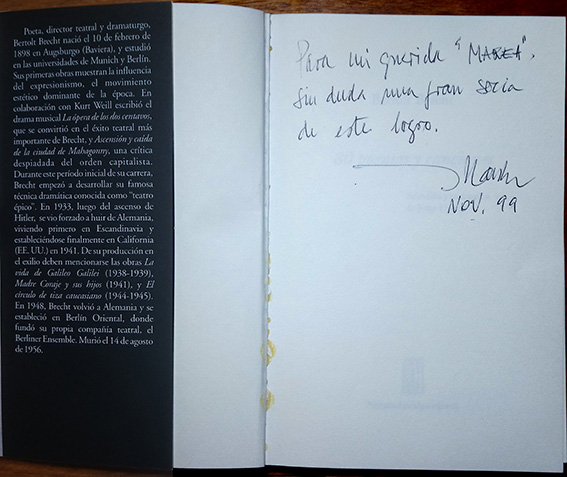 Poeta, director teatral y dramaturgo,
Bertolt Brecht nació el 10 de febrero de
1898 en Augsburgo (Baviera), y estudió
en las universidades de Munich y Berlín.
Sus primeras obras muestran la influencia
del expresionismo, el movimiento
estético dominante de la época. En
colaboración con Kurt Weill escribió el
drama musical La ópera de los dos centavos,
que se convirtió en el éxito teatral más
importante de Brecht, y Ascensión y caída
de la ciudad de Mahagonny, una crítica
despiadada del orden capitalista.
Durante este período inicial de su carrera,
Brecht empezó a desarrollar su famosa
técnica dramática conocida como "teatro
épico". En 1933, luego del ascenso de
Hitler, se vio forzado a huir de Alemania,
viviendo primero en Escandinavia y
estableciéndose finalmente en California
(EE. UU.) en 1941. De su producción en
el exilio deben mencionarse las obras La
vida de Galileo Galilei (1938-1939),
Madre Coraje y sus hijos (1941), y El
círculo de tiza caucasiano (1944-1945).
En 1948, Brecht volvió a Alemania y se
estableció en Berlín Oriental, donde
fundó su propia compañía teatral, el
Berliner Ensemble. Murió el 14 de agosto
de 1956.
Para mi querida
Sin duda una gran socia
de este logro.
NOV. 99